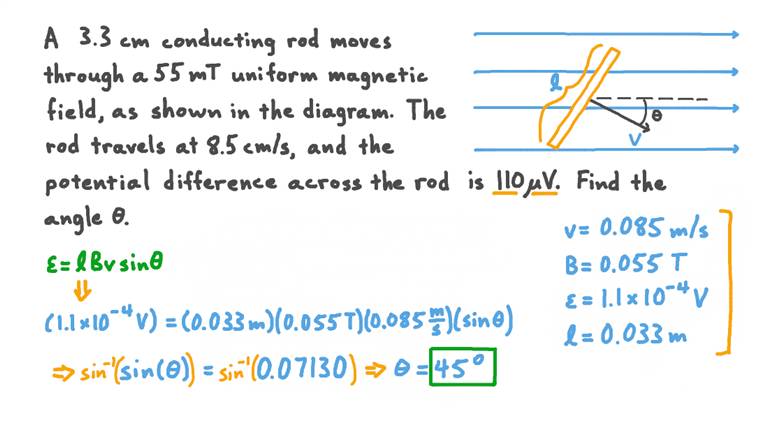 A 3.3 cm conducting rod moves
through a 55 mT uniform magnetic
field, as shown in the diagram. The
rod travels at 8.5 cm/s, and the
potential difference across the rod is 110 μV. Find the
angle θ.
l
θ
v
v = 0.085 m/s
B = 0.055 T
ε = 1.1 × 10⁻⁴ V
l = 0.033 m
ε = lBv sinθ
⇓
(1.1 × 10⁻⁴ V) = (0.033 m)(0.055 T)(0.085 m/s)(sinθ)
⇒ sin⁻¹(sin(θ)) = sin⁻¹(0.07130) ⇒ θ = 45°